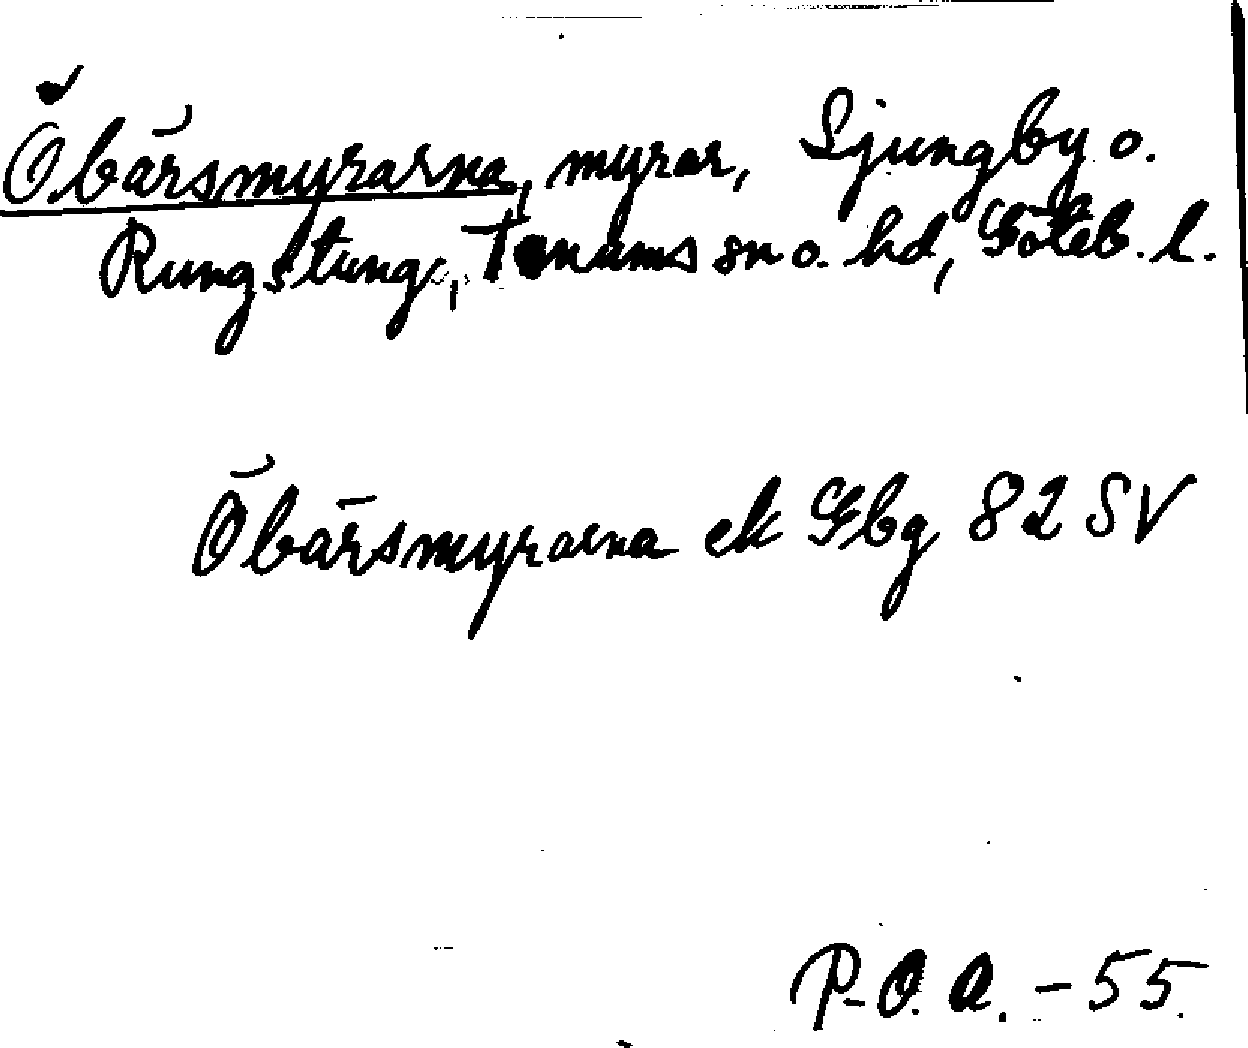 Öbärsmyrarna, myrar, Ljungby o.
Rungstung, Tanums sn o. hd, Göteb. l.
Öbärsmyrarna ek Gbg 82 SV
P-O. A. - 55.